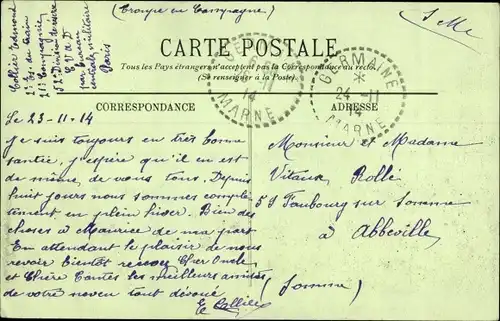 (Troupe en Campagne)
F.M.
Collier Edmond
par
Paris
CARTE POSTALE
Tous les Pays étrangers n'acceptent pas la Correspondance au recto.
(Se renseigner à la Poste).
GERMAINE
24 -11
14
MARNE
14
MARNE
CORRESPONDANCE
ADRESSE
Le 23-11-14
Je suis toujours en très bonne
santée, j'espère qu'il en est
de même, de vous tous. Depuis
huit jours nous sommes complè
tement en plein hiver. Bien des
choses à Maurice de ma part
En attendant le plaisir de vous
revoir Bientôt recevez Cher Oncle
et Chère Tantes les meilleurs amitiés
de votre neveu tout dévoué
E. Collier
Monsieur et Madame
Vitaux Rolle
59 Faubourg sur Somme
à Abbeville
(Somme)